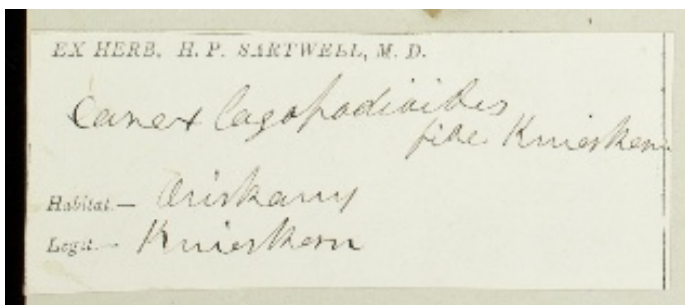 EX HERB. H. P. SARTWELL, M. D.
Carex lagopodioides
fide Knieskern
Habitat.— Oriskany
Legit.— Knieskern